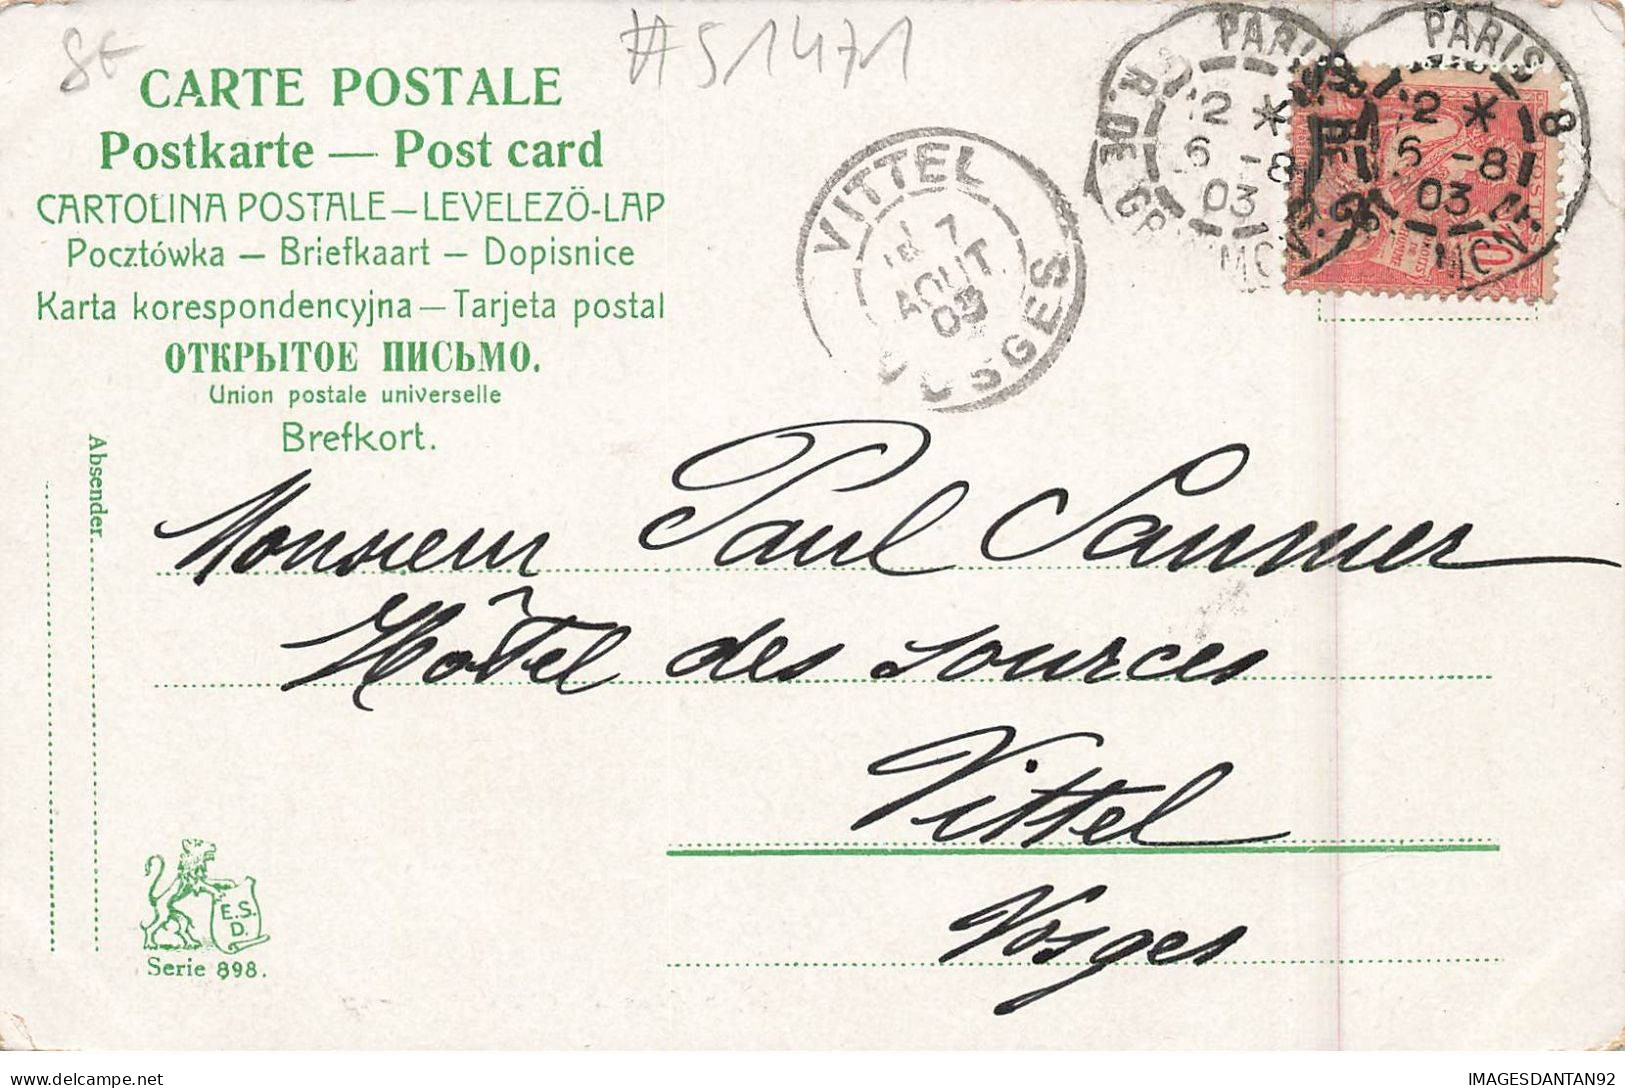 8€
#51471
CARTE POSTALE
Postkarte — Post card
CARTOLINA POSTALE — LEVELEZÖ-LAP
Pocztówka — Briefkaart — Dopisnice
Karta korespondencyjna — Tarjeta postal
ОТКРЫТОЕ ПИСЬМО.
Union postale universelle
Brefkort.
Absender
VITTEL
7
AOUT
03
VOSGES
PARIS 8
R. DE GRAMMONT
12 *
6 -8
03
PARIS 8
12 *
6 -8
03
Monsieur Paul Saumer
Hôtel des sources
Vittel
Vosges
E.S.
D.
Serie 898.
IMAGESDANTAN92